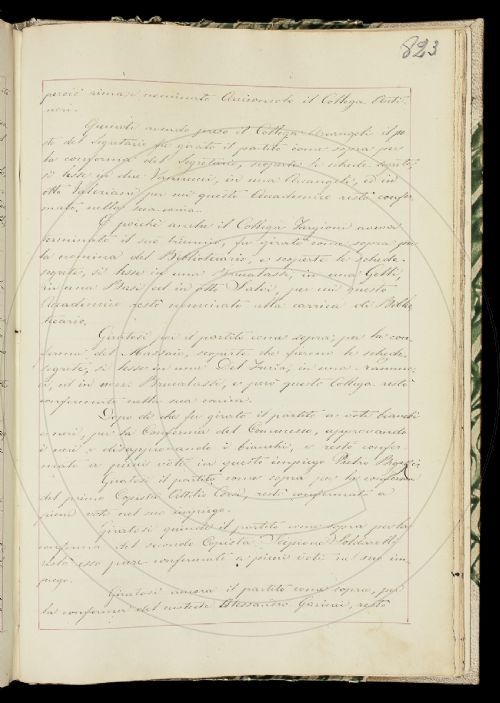 823
perciò rimase nominato Arciconsolo il Collega Anti-
nori.
Quindi avendo preso il Collega Arcangeli il po-
sto del Segretario fu girato il partito come sopra per
la conferma del Segretario, scoperte le schede segrete,
si lesse in due Vannucci, in una Arcangeli, ed in
otto Valeriani per cui questo Accademico restò confer-
mato nella sua carica.
E poichè anche il Collega Targioni aveva
terminato il suo triennio, fu girato come sopra per
la nomina del Bibliotecario, e scoperte le schede
segrete, si lesse in una Brucalassi, in una Gelli,
in una Bresi ed in otto per cui questo
Accademico restò nominato alla carica di Biblio-
tecario.
Giratosi poi il partito come sopra, per la con-
ferma del Massaio, scoperte che furono le schede
segrete, si lesse in una Del Furia, in una Vannuc-
ci, ed in nove Brucalassi, e però questo Collega restò
confermato nella sua carica.
Dopo di che fu girato il partito a voti bianchi
e neri, per la Conferma del Commesso, approvando
i neri e disapprovando i bianchi, e restò confer-
mato a pieni voti in questo impiego Pietro
Giratosi il partito come sopra per la conferma
del primo Copista Attilio restò confermato a
pieni voti nel suo impiego.
Giratosi quindi il partito come sopra per la
conferma del secondo Copista
restò esso pure confermato a pieni voti nel suo im-
piego.
Giratosi ancora il partito come sopra, per
la conferma del custode Alessandro restò